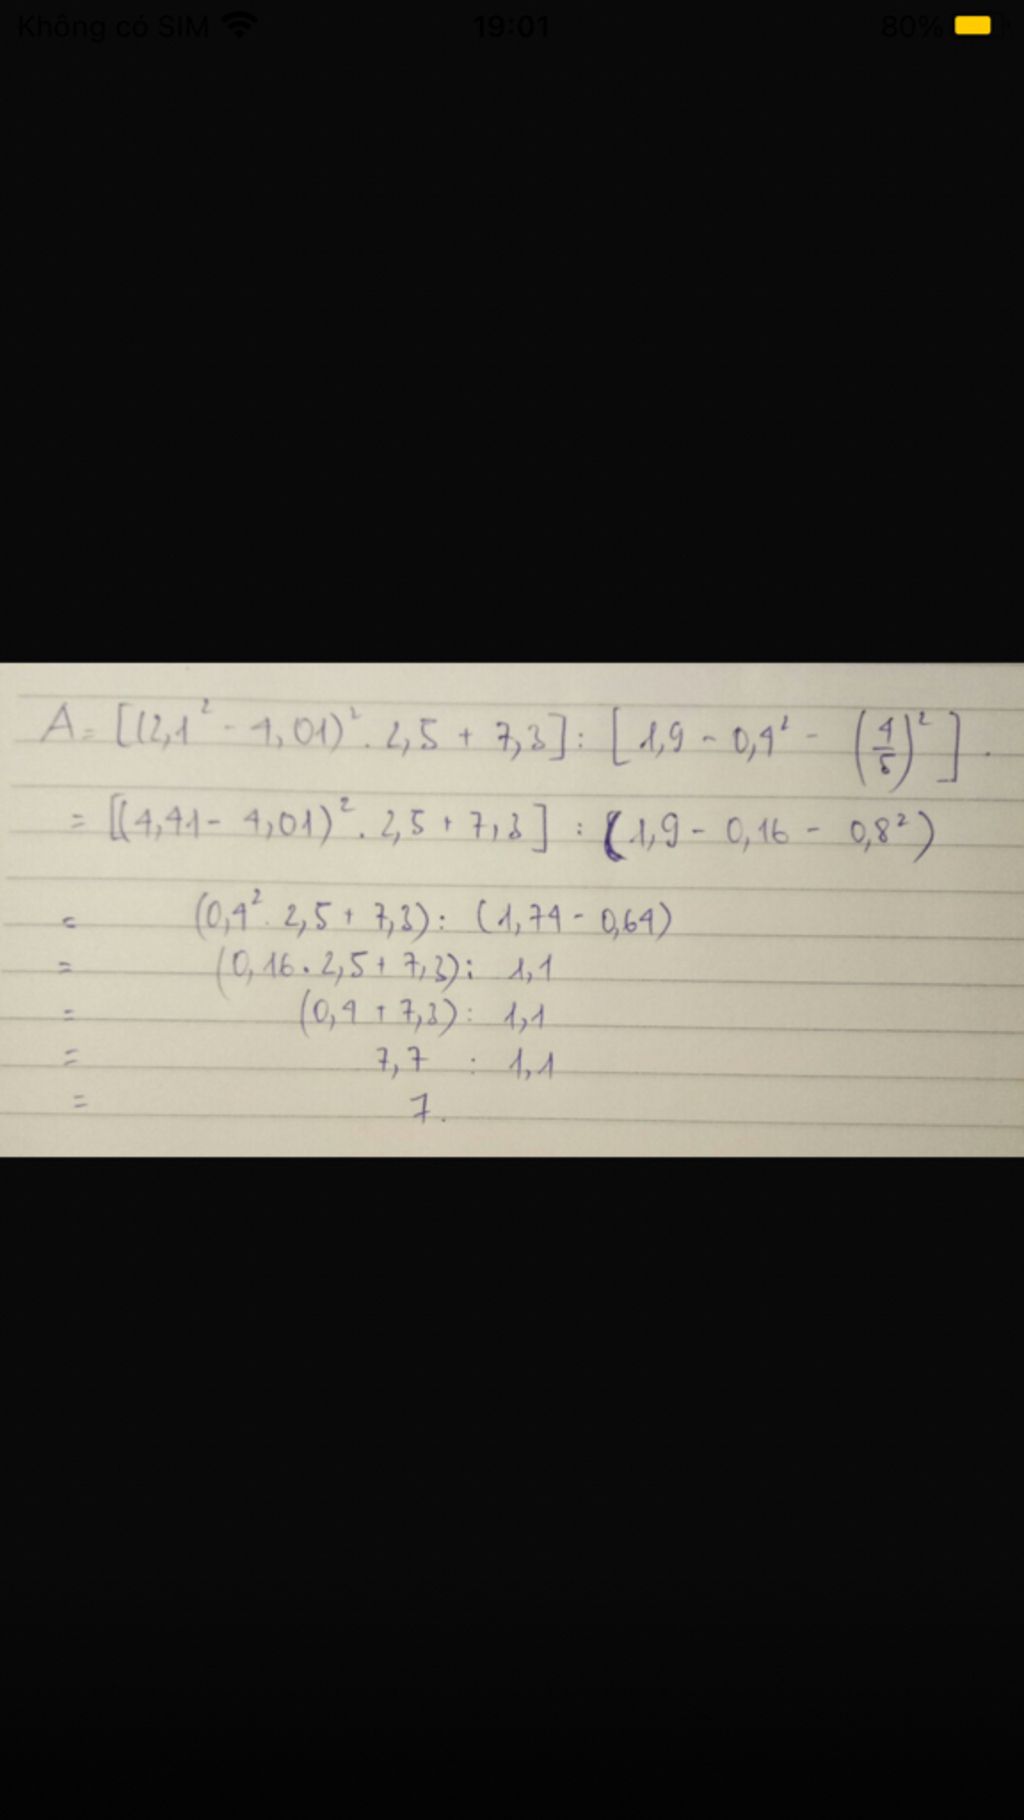 Không có SIM 19:01 80%
A = [(2,1² - 4,01)² . 2,5 + 7,3] : [1,9 - 0,4² - (4/5)²] .
= [(4,41 - 4,01)² . 2,5 + 7,3] : (1,9 - 0,16 - 0,8²)
= (0,4² . 2,5 + 7,3) : (1,74 - 0,64)
= (0,16 . 2,5 + 7,3) : 1,1
= (0,4 + 7,3) : 1,1
= 7,7 : 1,1
= 7.